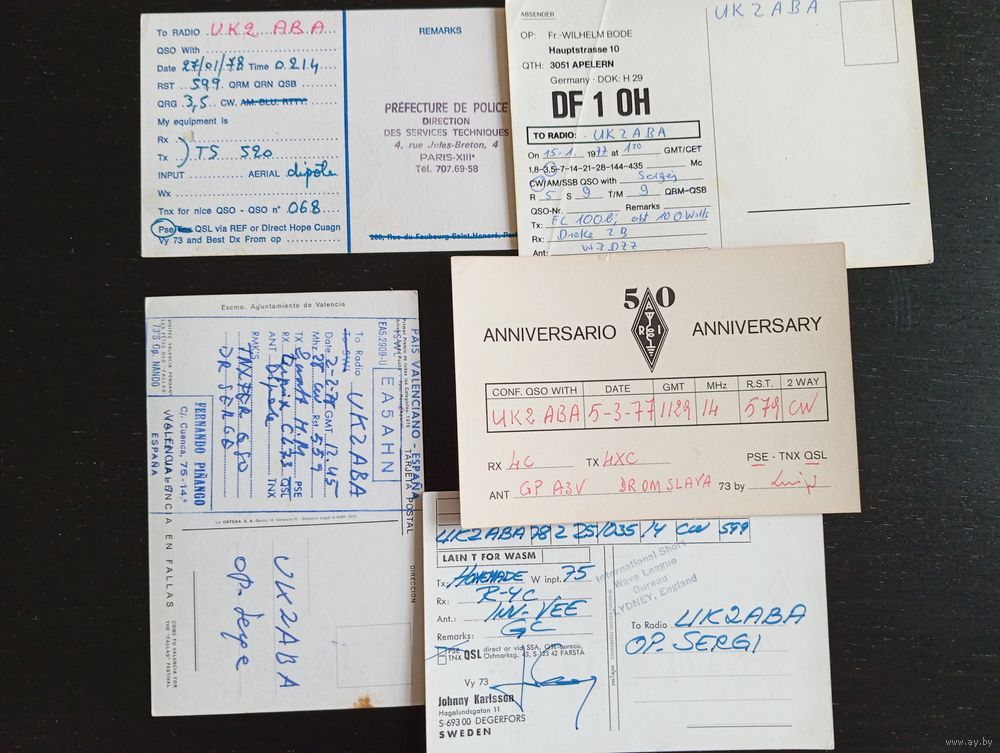 To RADIO UK2 ABA
QSO With
Date 27/01/78 Time 0214
RST 599 QRM QRN QSB
QRG 3,5 CW. AM. BLU. RTTY.
My equipment is
Rx
Tx ) TS 520
INPUT AERIAL dipôle
Wx
Tnx for nice QSO - QSO n° 068
Pse Tnx QSL via REF or Direct Hope Cuagn
Vy 73 and Best Dx From op
REMARKS
PRÉFECTURE DE POLICE
DIRECTION
DES SERVICES TECHNIQUES
4, rue Jules-Breton, 4
PARIS-XIIIe
Tél. 707.69-58
208, Rue du Faubourg-Saint-Honoré, Par
ABSENDER
OP: Fr.-WILHELM BODE
Hauptstrasse 10
QTH: 3051 APELERN
Germany · DOK: H 29
DF 1 OH
TO RADIO: UK2ABA
On 15.1. 1977 at 120 GMT/CET
1,8-3,5-7-14-21-28-144-435 Mc
CW/AM/SSB QSO with Sergej
R 5 S 9 T/M 9 QRM-QSB
QSO-Nr. Remarks
Tx: FL 100B; abt 100 Watts
Rx: Drake 2B
Ant: W3DZZ
UK2ABA
Excmo. Ayuntamiento de Valencia
PAIS VALENCIANO - ESPAÑA
TARJETA POSTAL
EA5.2909-U
EA5AHN
To Radio UK2ABA
To SWL
Date 2-2-78 GMT 12.45
Mhz 28 CW Rst 559
PSE
QSL
TNX
ANT Dipole
RMKS TNX FOR QSO
DR SERGE
73'S Op. NANDO
FERNANDO PIÑANGO
C/. Cuenca, 75-14.ª
VALENCIA
ESPAÑA
VISITEZ VALENCIA PENDANT
LES FÊTES DES "FALLAS"
VALENCIA EN FALLAS
COME TO VALENCIA FOR
THE "FALLAS" FESTIVAL
DIRECCION
UK2ABA
50
ARI
ANNIVERSARIO
ANNIVERSARY
CONF. QSO WITH DATE GMT MHz R.S.T. 2 WAY
UK2 ABA 5-3-77 1129 14 579 CW
RX 4C TX 4XC PSE - TNX QSL
ANT GP A3V DR OM SLAVA 73 by Luigi
UK2ABA 78 2 25 1035 14 CW 599
LAEN T FOR WASM
Tx: HOMEMADE W inpt. 75
Rx: R-4C
Ant.: INV-VEE
Remarks: GC
PSE
TNX QSL direct or via SSA, QSL-bureau,
Ostmarksg. 43, S-123 42 FARSTA
Vy 73
Johnny Karlsson
Hagalundsgatan 11
S-693 00 DEGERFORS
SWEDEN
International Short
Wave League
Bureau
LYDNEY, England
To Radio UK2ABA
OP. SERGI
www.ay.by